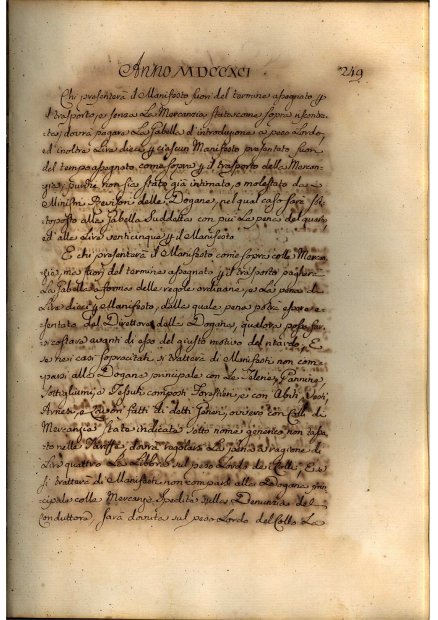 Anno MDCCXCI 249
Chi presenterà il Manifesto fuori del termine assegnato p
il trasporto, e senza La Mercanzia state come sopra
dovrà pagare La Gabella d'introduzione a peso Lordo,
ed inoltre Lire dieci p ciascun Manifesto presentato fuori
del tempo assegnato come sopra p il trasporto della Mercan-
zia, purchè non sia stato già intimato, o molestato da
Ministri Revisori delle Dogane, nel qual caso sarà sot-
toposto alla Gabella Suddetta con più La pena del quarto,
ed alle Lire venticinque p il Manifesto
E chi presenterà il Manifesto come sopra colla Mercan-
zia, ma fuori del termine assegnato p il trasporto pagherà
La Gabella a forma delle regole ordinarie, e La pena di
Lire dieci p Manifesto, dalla quale pena potrà essere e-
sentato dal Direttore della Dogana, qualora possa far
costare avanti di esso del giusto motivo del ritardo, E
se nei casi sopracitati si tratterà di Manifesti non com-
parsi alla Dogana principale con Le Telerie, Pannine
e Tessuti composti Forestieri, e con Abiti, Vesti,
Arnesi, e Lavori fatti di detti Generi, ovvero con Colli di
Mercanzia stata indicata sotto nome generico non
nelle Tariffe dovrà regolarsi La pena a ragione di
Lire quattro La Libbra sul peso Lordo de Colli, E se
si tratterà di Manifesti non comparsi alla Dogana prin-
cipale colle Mercanzie spedite sulla Denunzia del
Conduttore, sarà dovuta sul peso Lordo del Collo La